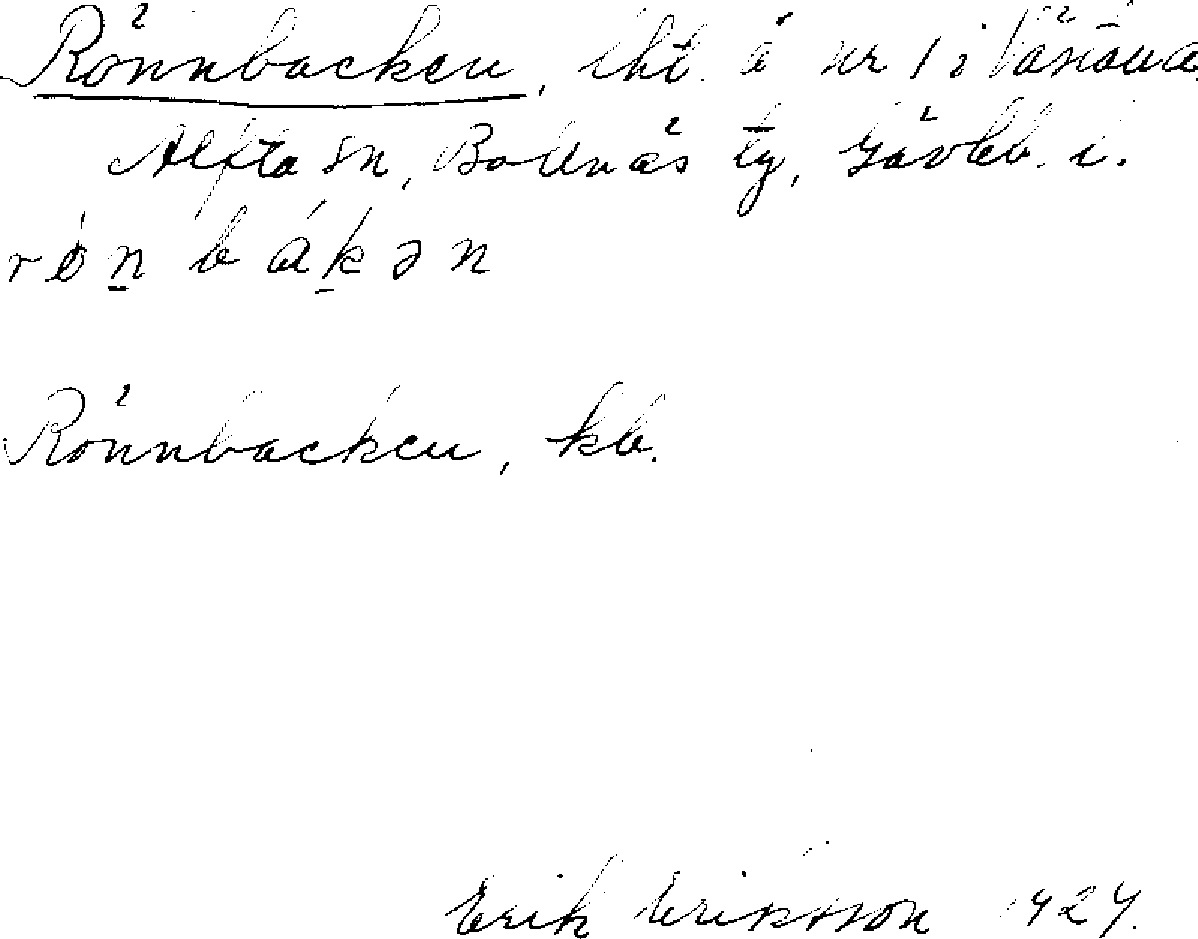 Rönnbacken, lht. å nr 1 i
Alfta sn, Bollnäs tg, Gävleb. l.
r ǿ n̲ b á k̲ ə n
Rönnbacken, kb.
Erik Eriksson